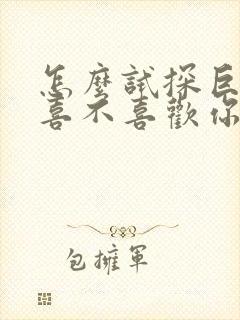 怎麼試探巨
喜不喜歡你
包擁軍